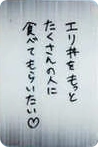 エリ丼をもっと
たくさんの人に
食べてもらいたい♡